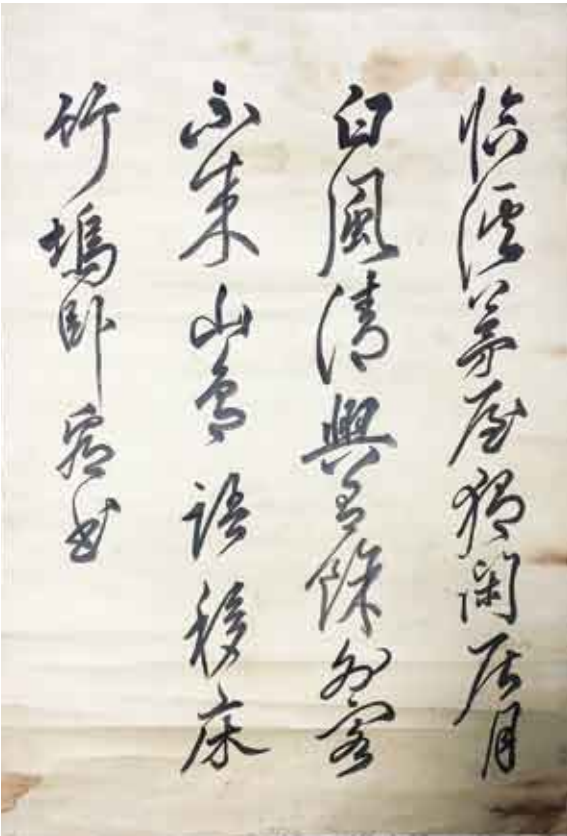 臨溪茅屋獨閑居月
白風淸興有餘外客
不来山鳥語移床
竹塢卧看書